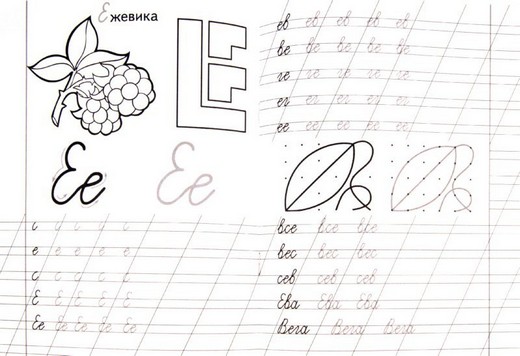 Ежевика
Е
Ее Ее
с с с с с
е е е е е
с с с с с
Е Е Е Е Е
Ее Ее Ее Ее Ее
ев ев ев ев ев
ве ве ве ве ве
ге ге ге ге ге
ег ег ег ег ег
ее ее ее ее ее
все все все
вес вес вес
сев сев сев
Ева Ева Ева
Вега Вега Вега